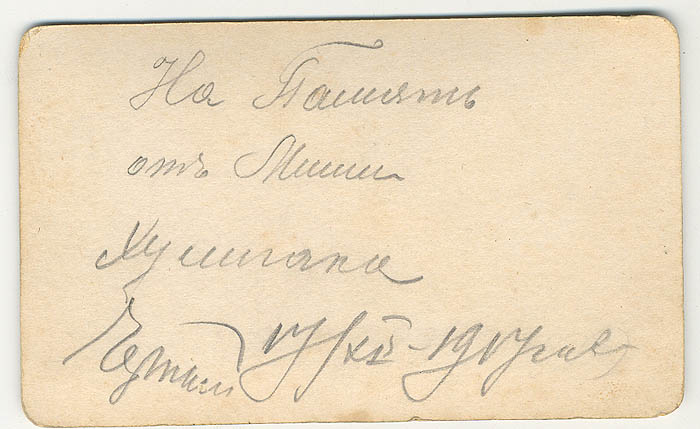 На Память
отъ Миши
Хулигана
17/XII-1917 года